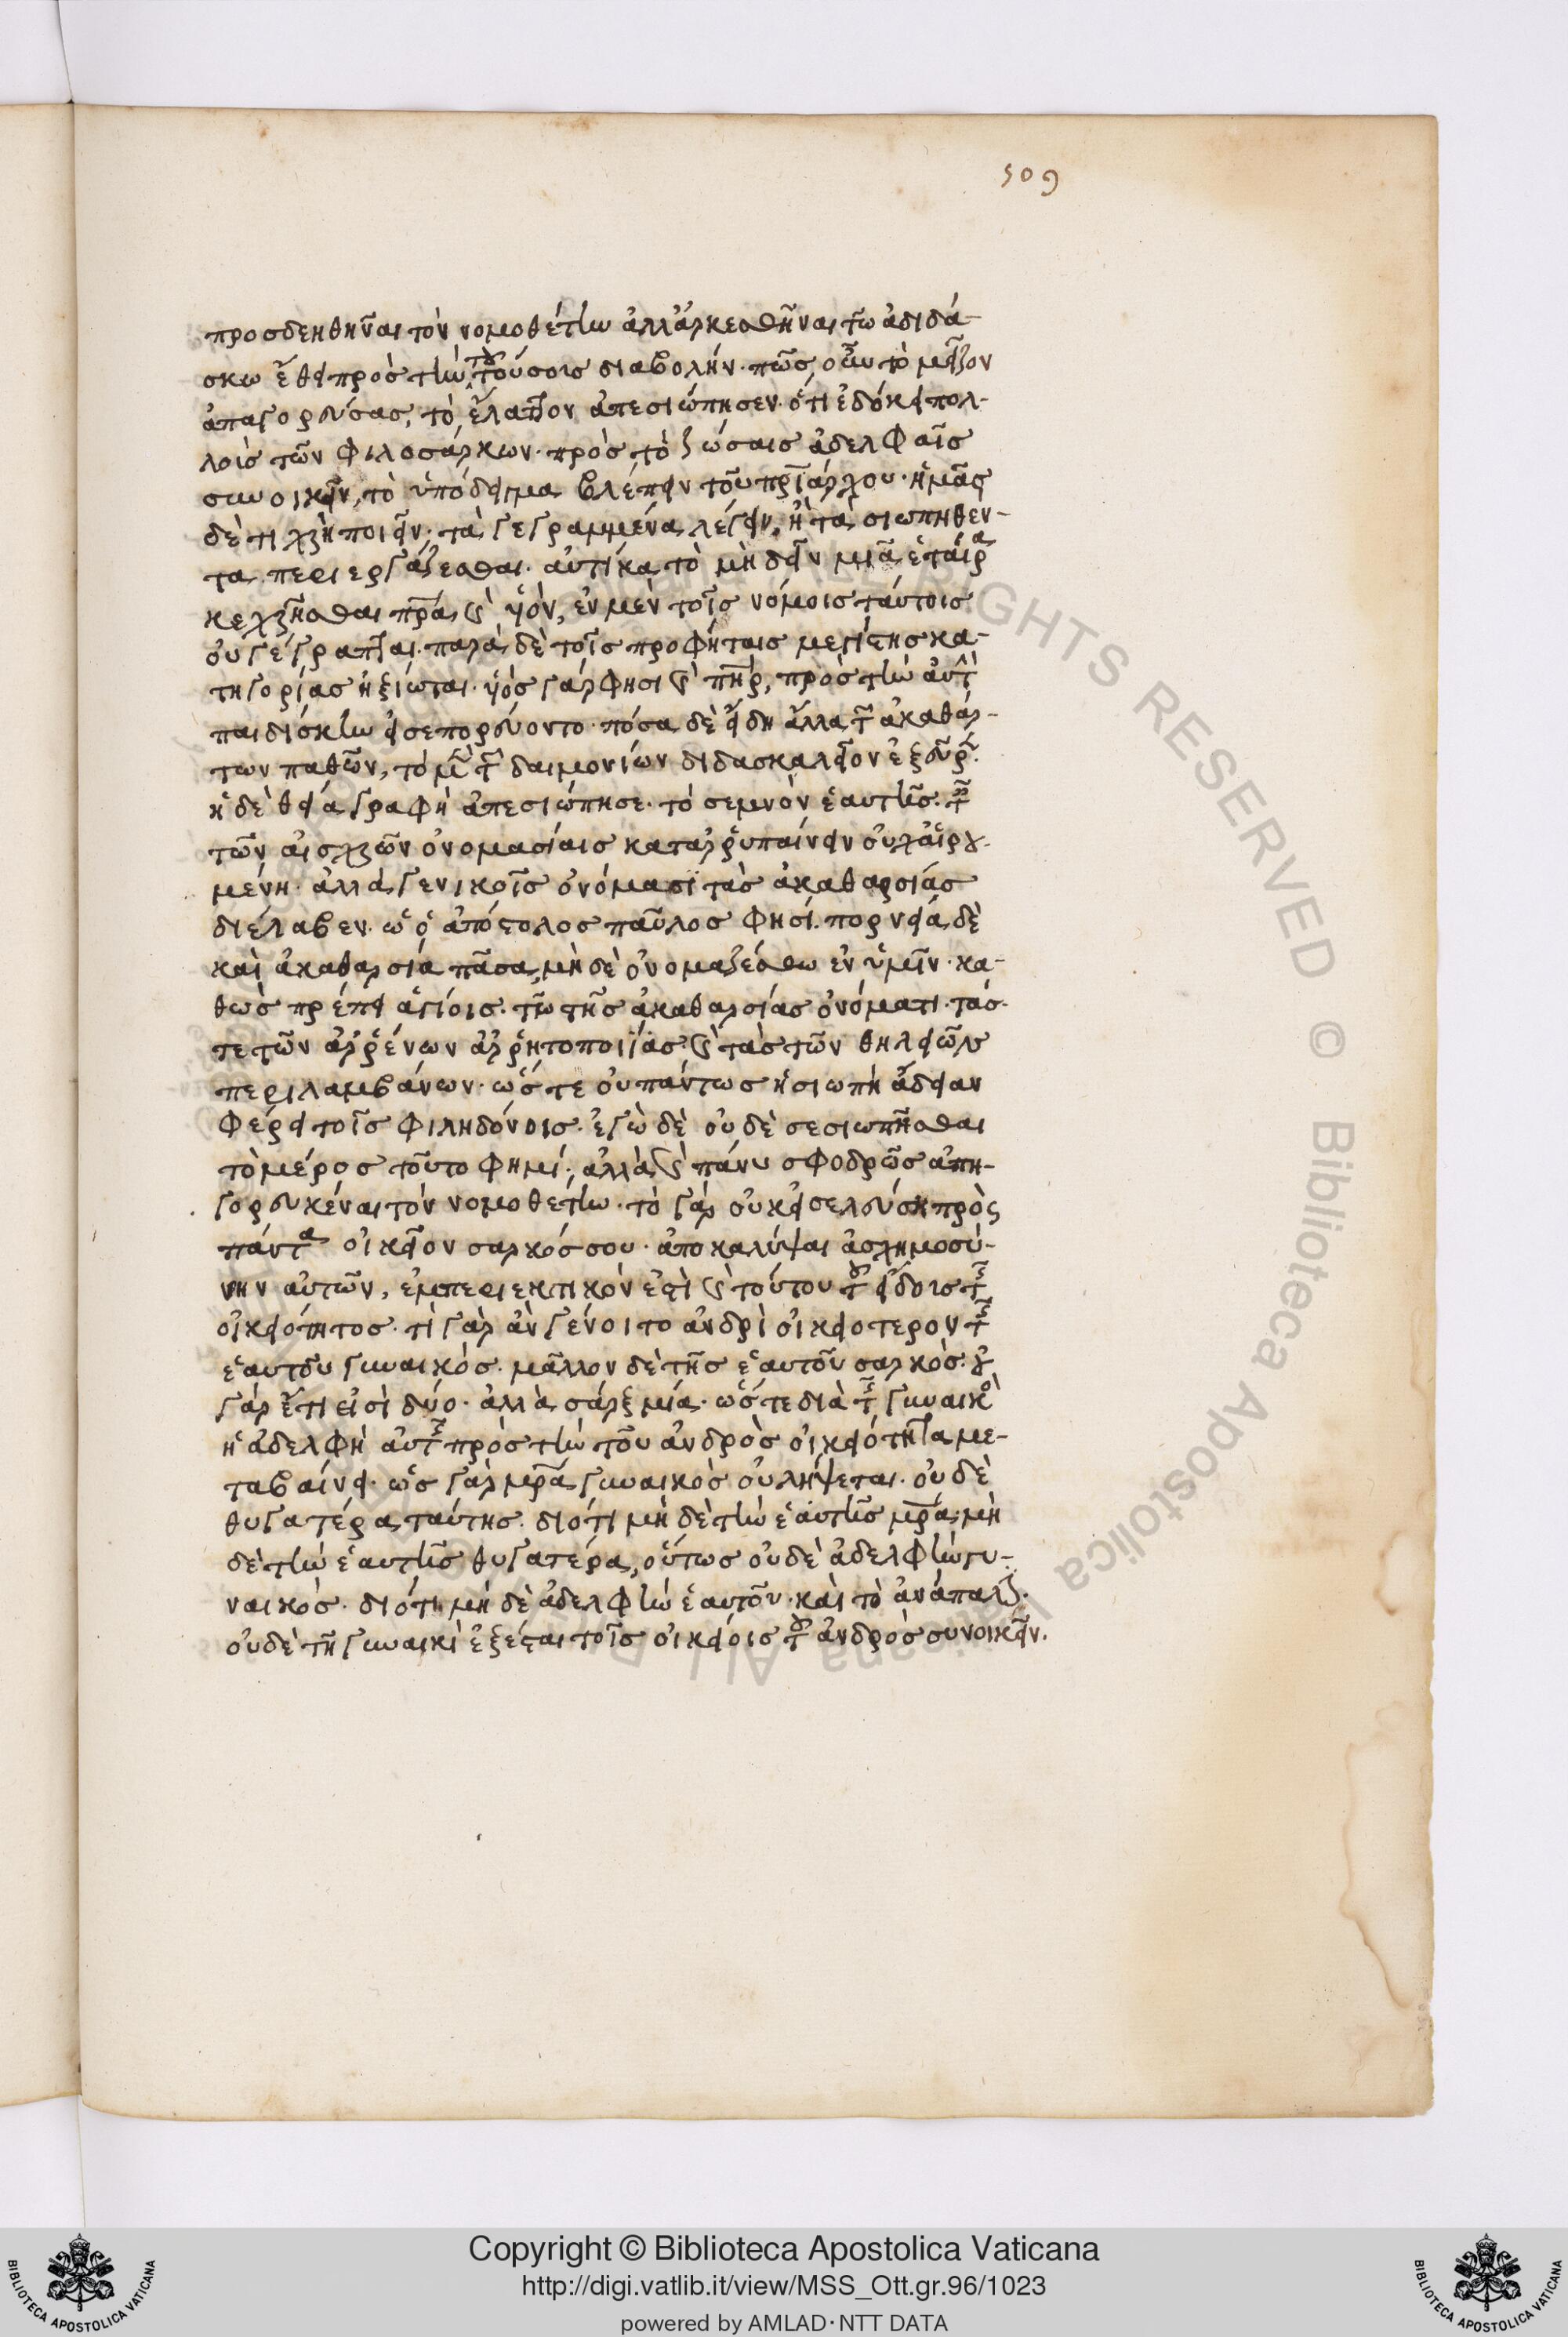 509
προσδεηθῆναι τὸν νομοθέτην ἀλλ' ἀρκεσθῆναι τῶ ἀδιδά-
σκω ἔθει πρὸς τὴν τοῦ τούσοις διαβολήν. πῶς οὖν τὸ μεῖζον
ἀπαγορεύσας, τὸ ἔλαττον ἀπεσιώπησεν. ὅτι ἐδόκει πολ-
λοὶς τῶν φιλοσάρκων. πρὸς τὸ ζώσαις ἀδελφαῖς
συνοικεῖν, τὸ ὑπόδειγμα βλέπειν τοῦ πριάρχου. ἡμᾶς
δὲ τί χρὴ ποιεῖν; τὰ γεγραμμένα λέγειν, ἢ τὰ σιωπηθέν-
τα περιεργάζεσθαι. αὐτίκα τὸ μὴ δεῖν μιᾶ ἑταίρα
κεχρῆσθαι πρα καὶ υἱὸν, ἐν μὲν τοῖς νόμοις ταύτοις
οὐ γέγραπται. παρὰ δὲ τοῖς προφήταις μεγίστης κα-
τηγορίας ἠξίωται. υἱὸς γάρ φησι καὶ πηρ, πρὸς τὴν αὐτὴν
παιδίσκην εἰσεπορεύοντο. πόσα δὲ εἴδη ἄλλα τῶν ἀκαθάρ-
των παθῶν, τὸ μὲν τῶν δαιμονίων διδασκαλεῖον ἐξεῦρε.
ἡ δὲ θεία γραφὴ ἀπεσιώπησε. τὸ σεμνὸν ἑαυτῆς.
τῶν αἰσχρῶν ὀνομασίαις καταρρυπαίνειν οὐχ αἱρου-
μένη. ἀλλὰ γενικοῖς ὀνόμασι τὰς ἀκαθαρσίας
διέλαβεν. ὡς ὁ ἀπόστολος παῦλος φησί. πορνεία δὲ
καὶ ἀκαθαρσία πᾶσα, μὴ δὲ ὀνομαζέσθω ἐν ὑμῖν. κα-
θὼς πρέπει ἁγίοις. τῶ τῆς ἀκαθαρσίας ὀνόματι. τάς
τε τῶν ἀρρένων ἀρρητοποιΐας καὶ τὰς τῶν θηλειῶν
περιλαμβάνων. ὥστε οὐ πάντως ἡ σιωπὴ ἄδειαν
φέρει τοῖς φιληδόνοις. ἐγὼ δὲ οὐδὲ σεσιωπῆσθαι
τὸ μέρος τοῦτο φημί, ἀλλὰ καὶ πάνυ σφοδρῶς ἀπη-
γορευκέναι τὸν νομοθέτην. τὸ γὰρ οὐκ εἰσελεύση πρὸς
πάντα οἰκεῖον σαρκός σου. ἀποκαλύψαι ἀσχημοσύ-
νην αὐτῶν, ἐμπεριεκτικόν ἐστι καὶ τούτου τοῦ εἴδους τῆς
οἰκειότητος. τί γὰρ ἂν γένοιτο ἀνδρὶ οἰκειότερον τῆς
ἑαυτοῦ γυναικός. μᾶλλον δὲ τῆς ἑαυτοῦ σαρκός. οὐ
γάρ ἔτι εἰσὶ δύο. ἀλλὰ σάρξ μία. ὥστε διὰ τῆς γυναικὸς
ἡ ἀδελφὴ αὐτῆς πρὸς τὴν τοῦ ἀνδρὸς οἰκειότητα με-
ταβαίνει. ὡς γὰρ μρα γυναικὸς οὐ λήψεται. οὐδὲ
θυγατέρα ταύτης. διότι μὴ δὲ τὴν ἑαυτῆς μρα, μὴ
δὲ τὴν ἑαυτῆς θυγατέρα, οὕτως οὐδὲ ἀδελφὴν γυ-
ναικός. διότι μὴ δὲ ἀδελφὴν ἑαυτοῦ. καὶ τὸ ἀνάπαλιν.
οὐδὲ τῆ γυναικὶ ἐξέσται τοῖς οἰκείοις τοῦ ἀνδρὸς συνοικεῖν.
Copyright © Biblioteca Apostolica Vaticana
http://digi.vatlib.it/view/MSS_Ott.gr.96/1023
powered by AMLAD·NTT DATA